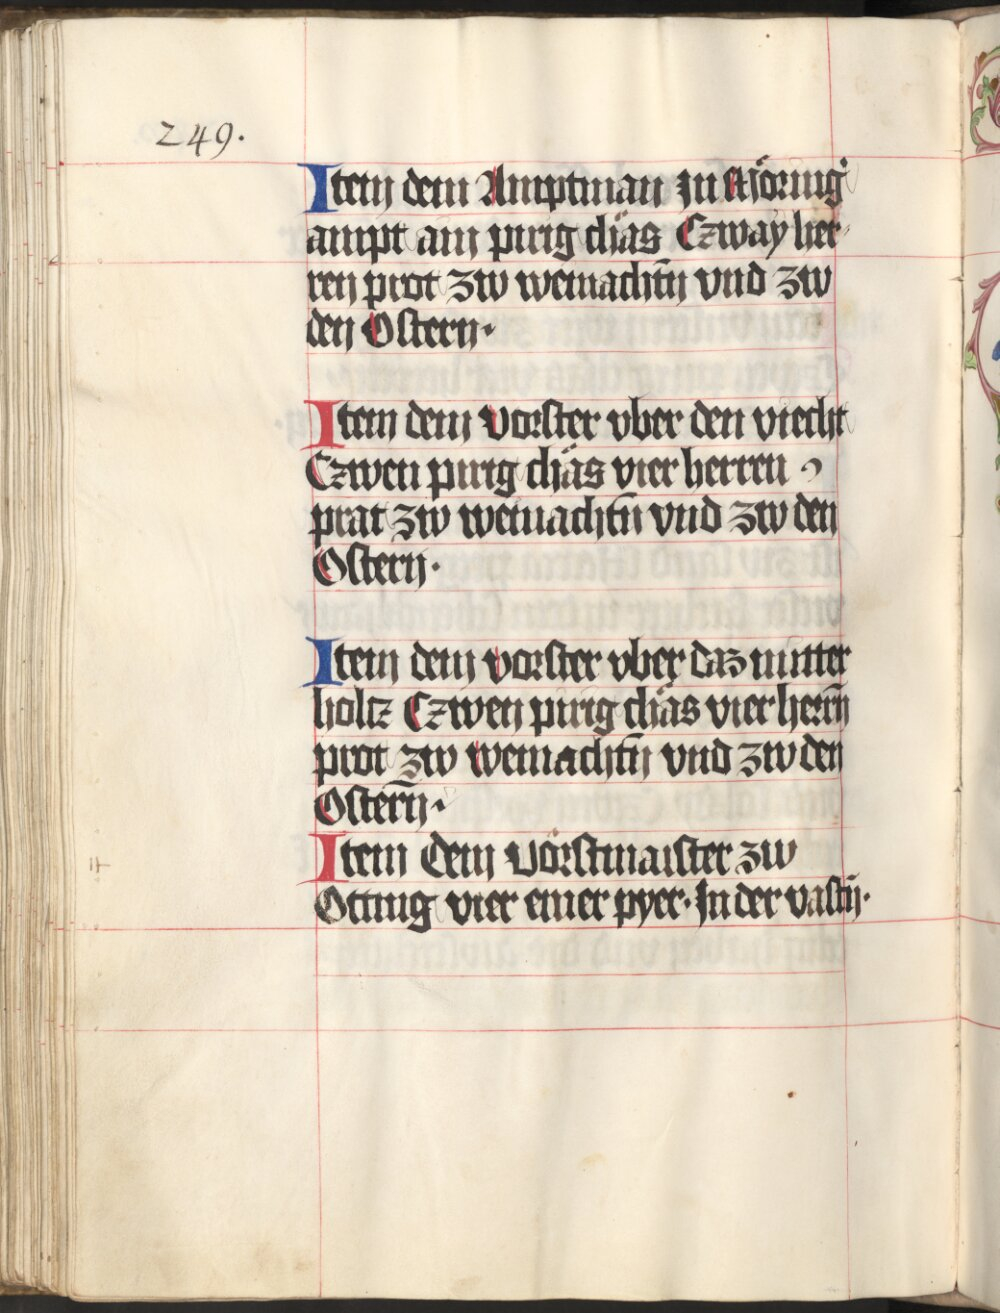 249.
Item dem Amptman zu Möring
ampt ain pirig chäs Czway her-
ren prot zw weinachtn̄ vnd zw
den Ostern·
Item dem vorster vber den viecht
Czwen pirig chäs vier herren
prat zw weinachtn̄ vnd zw den
Ostern·
Item dem vorster vber daz mitter
holtz Czwen pirig chäs vier herrn̄
prot zw weinachtn̄ vnd zw den
Ostern̄·
Item Dem vörstmaister zw
Otting vier eimer pyer· In der vastn̄·